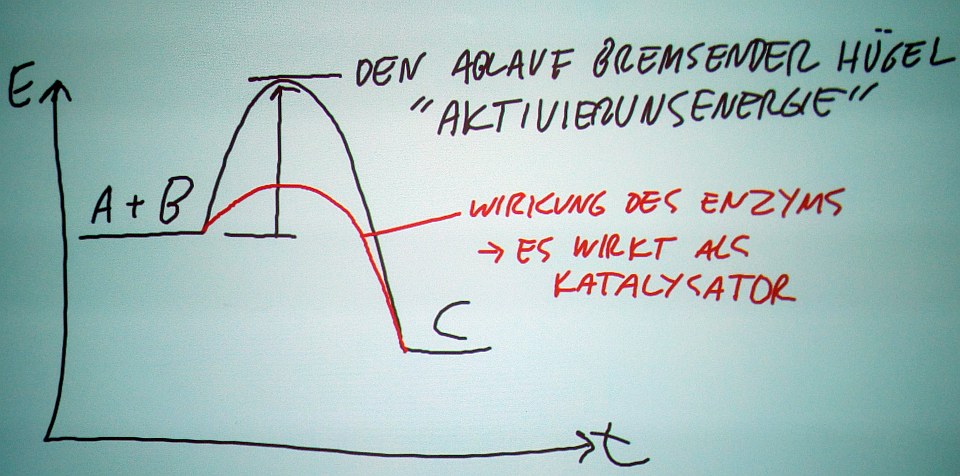 DEN ABLAUF BREMSENDER HÜGEL
"AKTIVIERUNSENERGIE"
E
A + B
WIRKUNG DES ENZYMS
→ ES WIRKT ALS
KATALYSATOR
C
t